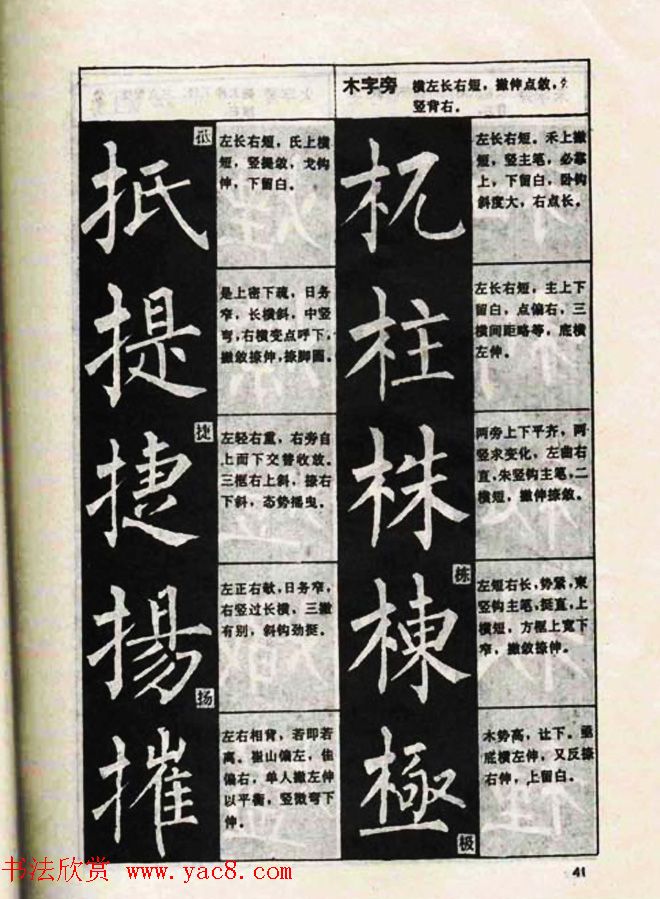 木字旁
横左长右短，撇伸点敛，
竖背右。
抵
抵
左长右短，氏上横
短，竖提敛，戈钩
伸，下留白。
提
是上密下疏，日务
窄，长横斜，中竖
弯，右横变点呼下，
撇敛捺伸，捺脚圆。
捷
捷
左轻右重，右旁自
上而下交替收放。
三框右上斜，捺右
下斜，态势摇曳。
揚
扬
左正右欹，日务窄，
右竖过长横，三撇
有别，斜钩劲挺。
摧
左右相背，若即若
离。崔山偏左，佳
偏右，单人撇左伸
以平衡，竖微弯下
伸。
机
左长右短。禾上撇
短，竖主笔，必靠
上，下留白，卧钩
斜度大，右点长。
柱
左长右短，主上下
留白，点偏右，三
横间距略等，底横
左伸。
株
两旁上下平齐，两
竖求变化，左曲右
直，朱竖钩主笔，二
横短，撇伸捺敛。
棟
栋
左短右长，势紧，東
竖钩主笔，挺直，上
横短，方框上宽下
窄，撇敛捺伸。
極
极
木势高，让下。亟
底横左伸，又反捺
右伸，上留白。
41
书法欣赏 www.yac8.com